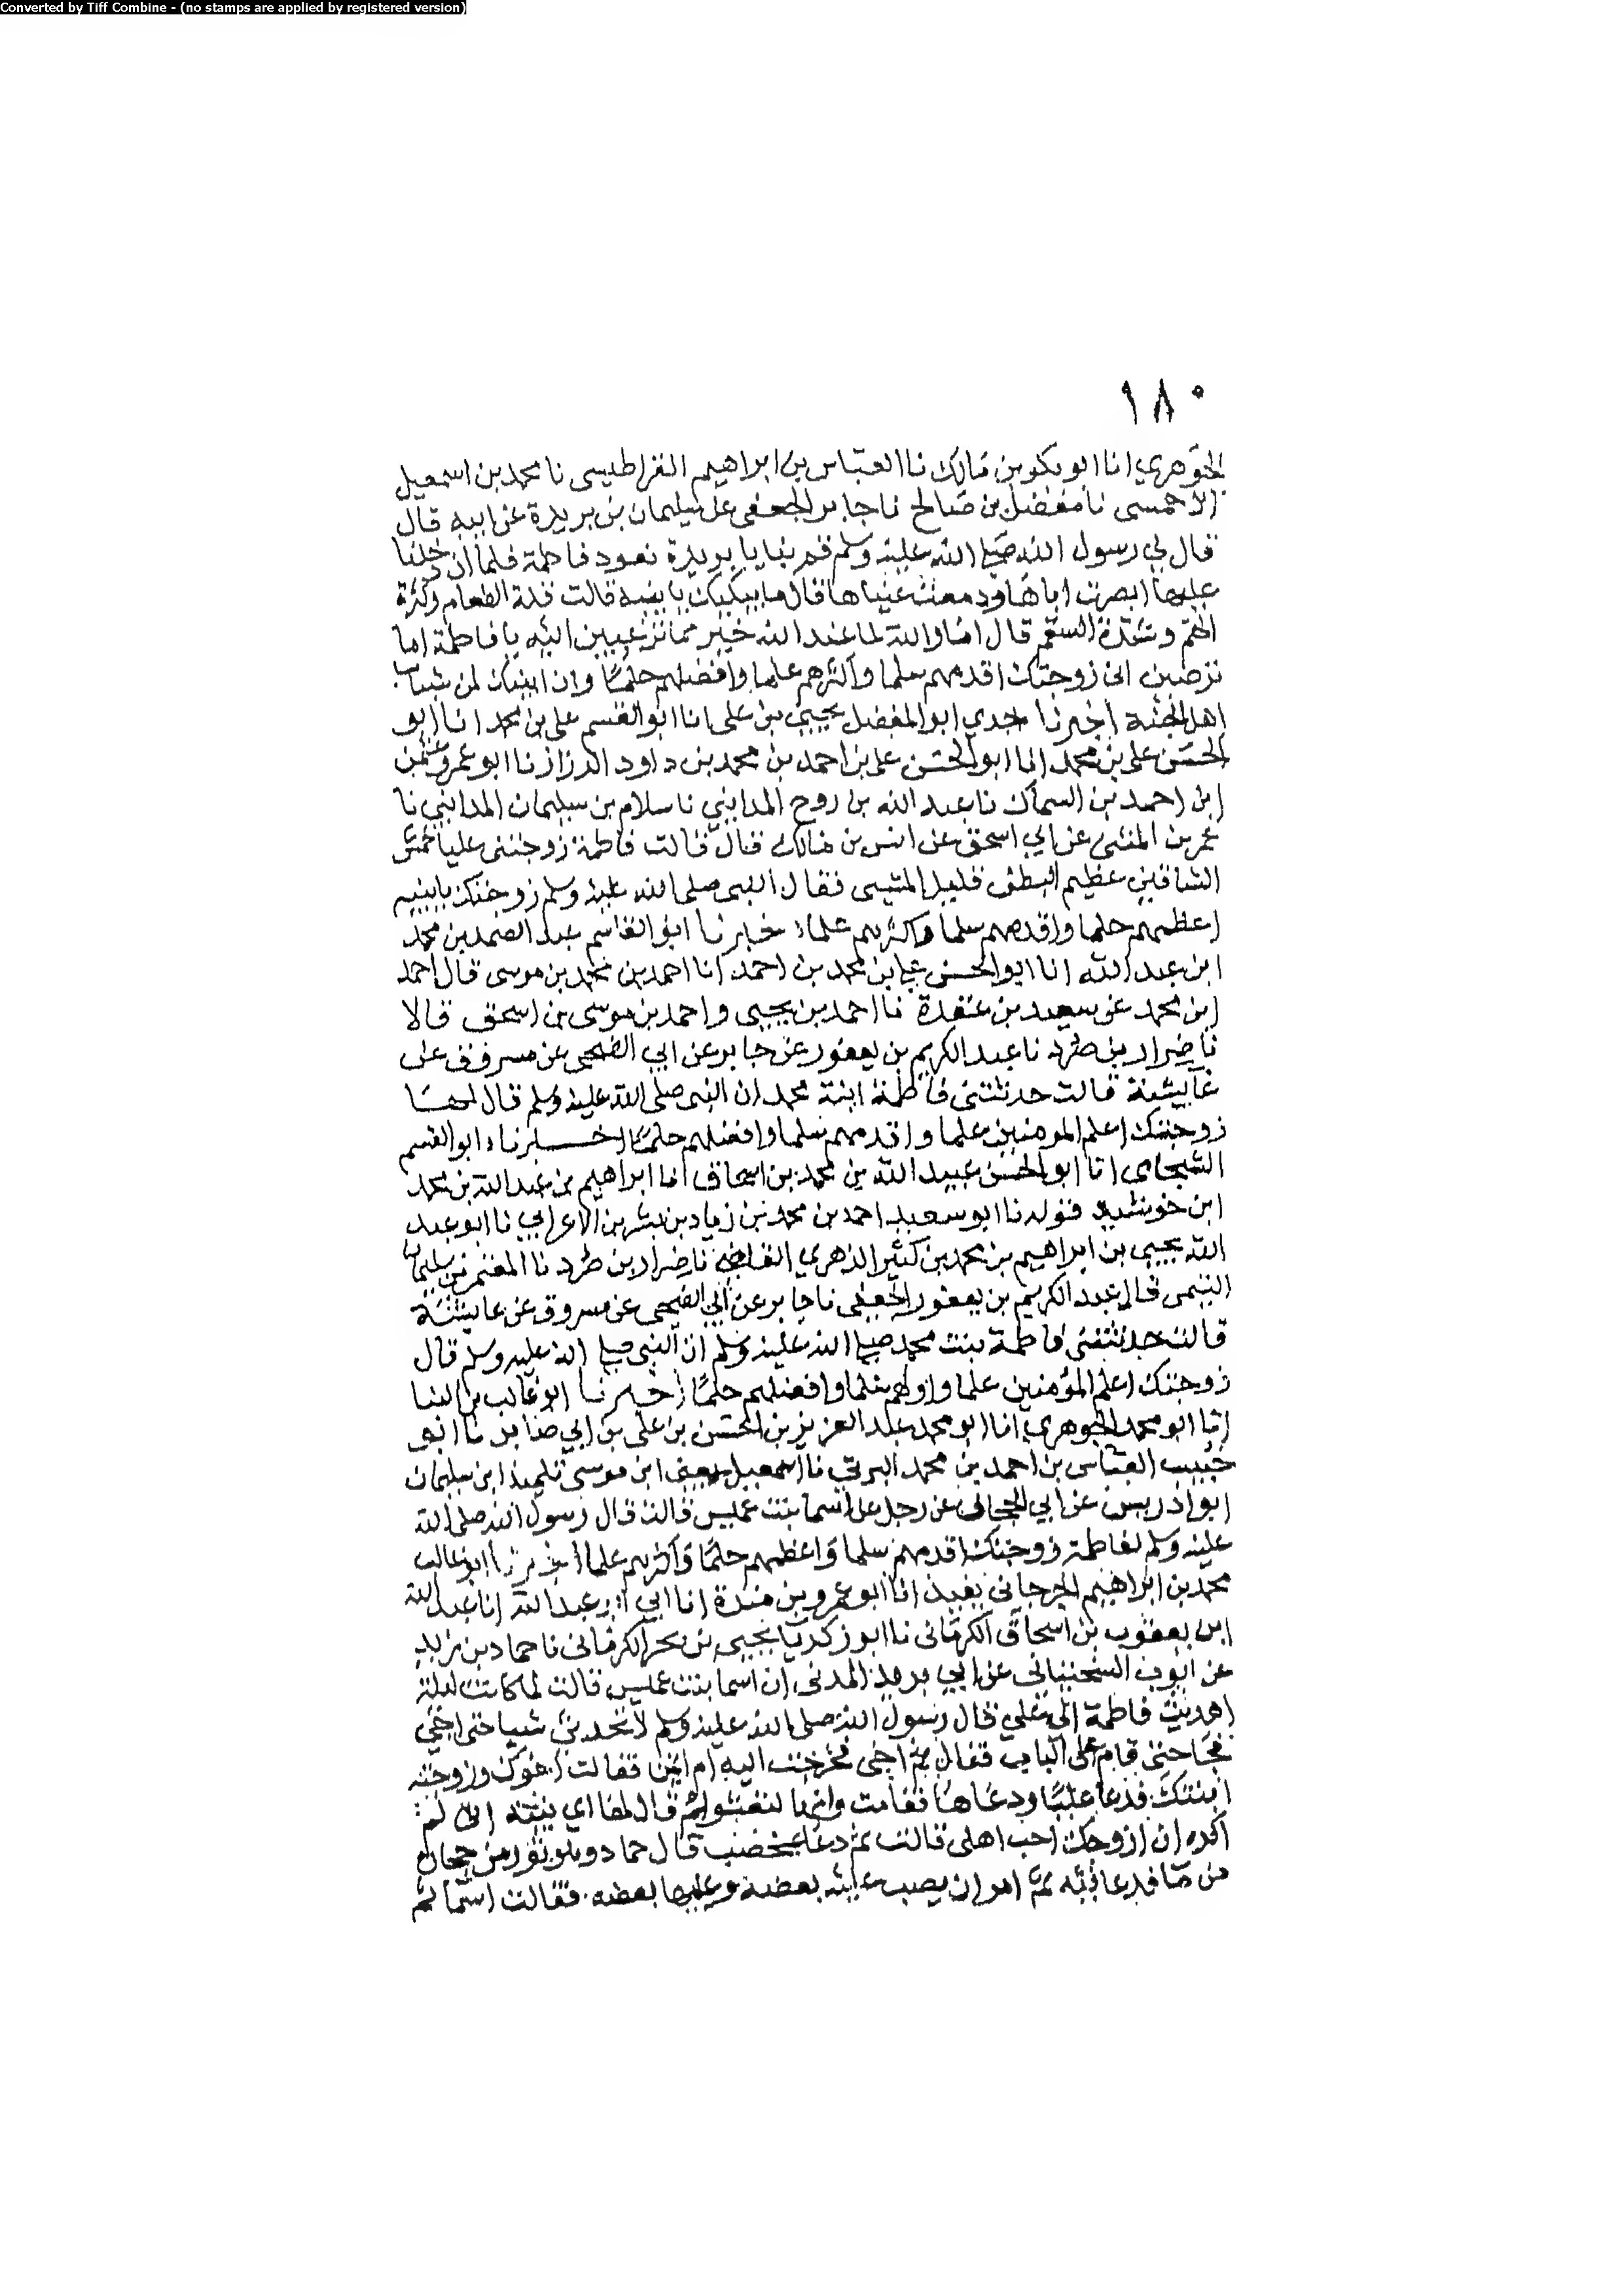 Converted by Tiff Combine - (no stamps are applied by registered version)
١٨٠
الجوهري انا ابو بكر بن مالك نا العباس بن ابراهيم القراطيسى نا محمد بن اسمعيل
الاحمسى نا مفضل بن صالح نا جابر الجعفى عن سليمان بن بريدة عن ابيه قال
قال لي رسول الله صلى الله عليه وسلم قم بنا يا بريدة نعود فاطمة فلما ان دخلنا
عليها ابصرت اباها ودمعت عيناها قال ما يبكيك يا بنيه قالت قلة الطعام وكثرة
الهم وشدة السقم قال اما والله لما عند الله خير مما ترغبين اليه يا فاطمة اما
ترضين انى زوجتك اقدمهم سلما واكثرهم علما وافضلهم حلما وان ابنيك لمن شباب
اهل الجنة اخبرنا جدي ابو المفضل يحيى بن على انا ابو القسم على بن محمد انا ابو
الحسن على بن محمد انا ابو الحسن على بن احمد بن محمد بن داود الرزاز نا ابو عمرو عثمن
ابن احمد بن السماك نا عبد الله بن روح المدايني نا سلام بن سليمان المدايني نا
عمر بن المثنى عن ابي اسحق عن انس بن مالك قال قالت فاطمة زوجتنى عليا حمش
الساقين عظيم البطن قليل المشى فقال النبى صلى الله عليه وسلم زوجتك يا بنيه
اعظمهم حلما واقدمهم سلما واكثرهم علما اخبرنا ابو القاسم عبد الصمد بن محمد
ابن عبد الله انا ابو الحسن على بن محمد بن احمد انا احمد بن محمد بن موسى قال احمد
ابن محمد عن سعيد بن عقدة نا احمد بن يحيى واحمد بن موسى بن اسحق قالا
نا ضرار بن صرد نا عبد الكريم بن يعفور عن جابر عن ابي الضحى عن مسروق عن
عايشة قالت حدثتنى فاطمة ابنة محمد ان النبى صلى الله عليه وسلم قال لها
زوجتك اعلم المومنين علما واقدمهم سلما وافضلهم حلما اخبرنا ابو القسم
الشحامى انا ابو الحسن عبيد الله بن محمد بن اسحاق انا ابراهيم بن عبد الله بن محمد
ابن خرشيد قوله نا ابو سعيد احمد بن محمد بن زياد بن بشر بن الاعرابي نا ابو عبد
الله يحيى بن ابراهيم بن محمد بن كثير الزهري القاضي نا ضرار بن صرد نا المعتمر بن سليمان
التيمى قال عبد الكريم بن يعفور الجعفى نا جابر عن ابي الضحى عن مسروق عن عايشة
قالت حدثتنى فاطمة بنت محمد صلى الله عليه وسلم ان النبي صلى الله عليه وسلم قال
زوجتك اعلم المؤمنين علما واولهم سلما وافضلهم حلما اخبرنا ابو غالب بن البنا
انا ابو محمد الجوهري انا ابو محمد عبد العزيز بن الحسن بن على بن ابي صابر نا ابو
حبيب العباس بن احمد بن محمد البرتي نا اسمعيل يعنى ابن موسى نا تليد ابن سليمان
ابو ادريس عن ابي الجحاف عن رجل عن اسما بنت عميس قالت قال رسول الله صلى الله
عليه وسلم لفاطمة زوجتك اقدمهم سلما واعظمهم حلما واكثرهم علما اخبرنا ابو غالب
محمد بن ابراهيم الجرجانى انا ابو عمرو بن مندة انا ابي ابو عبد الله انا عبد الله
ابن يعقوب بن اسحاق الكرمانى نا ابو زكريا يحيى بن بحر الكرمانى نا حماد بن زيد
عن ايوب السختيانى عن ابي يزيد المدنى ان اسما بنت عميس قالت لما كانت ليلة
اهديت فاطمة الى على قال رسول الله صلى الله عليه وسلم لا تحدثن شيا حتى اجي
فجا حتى قام على الباب فقال ثم اخى فخرجت اليه ام ايمن فقالت اخوك وزوجته
ابنتك فدعا عليا ودعاها فقامت وانها لتعثر قال لها اي بنية انى لم
اكره ان ازوجك احب اهلى قالت ثم دعا بمخضب قال حماد وهو تور من حجارة
من ما فدعا فيه ثم امر ان يصب عليه بعضه وعليها بعضه فقالت اسما ثم